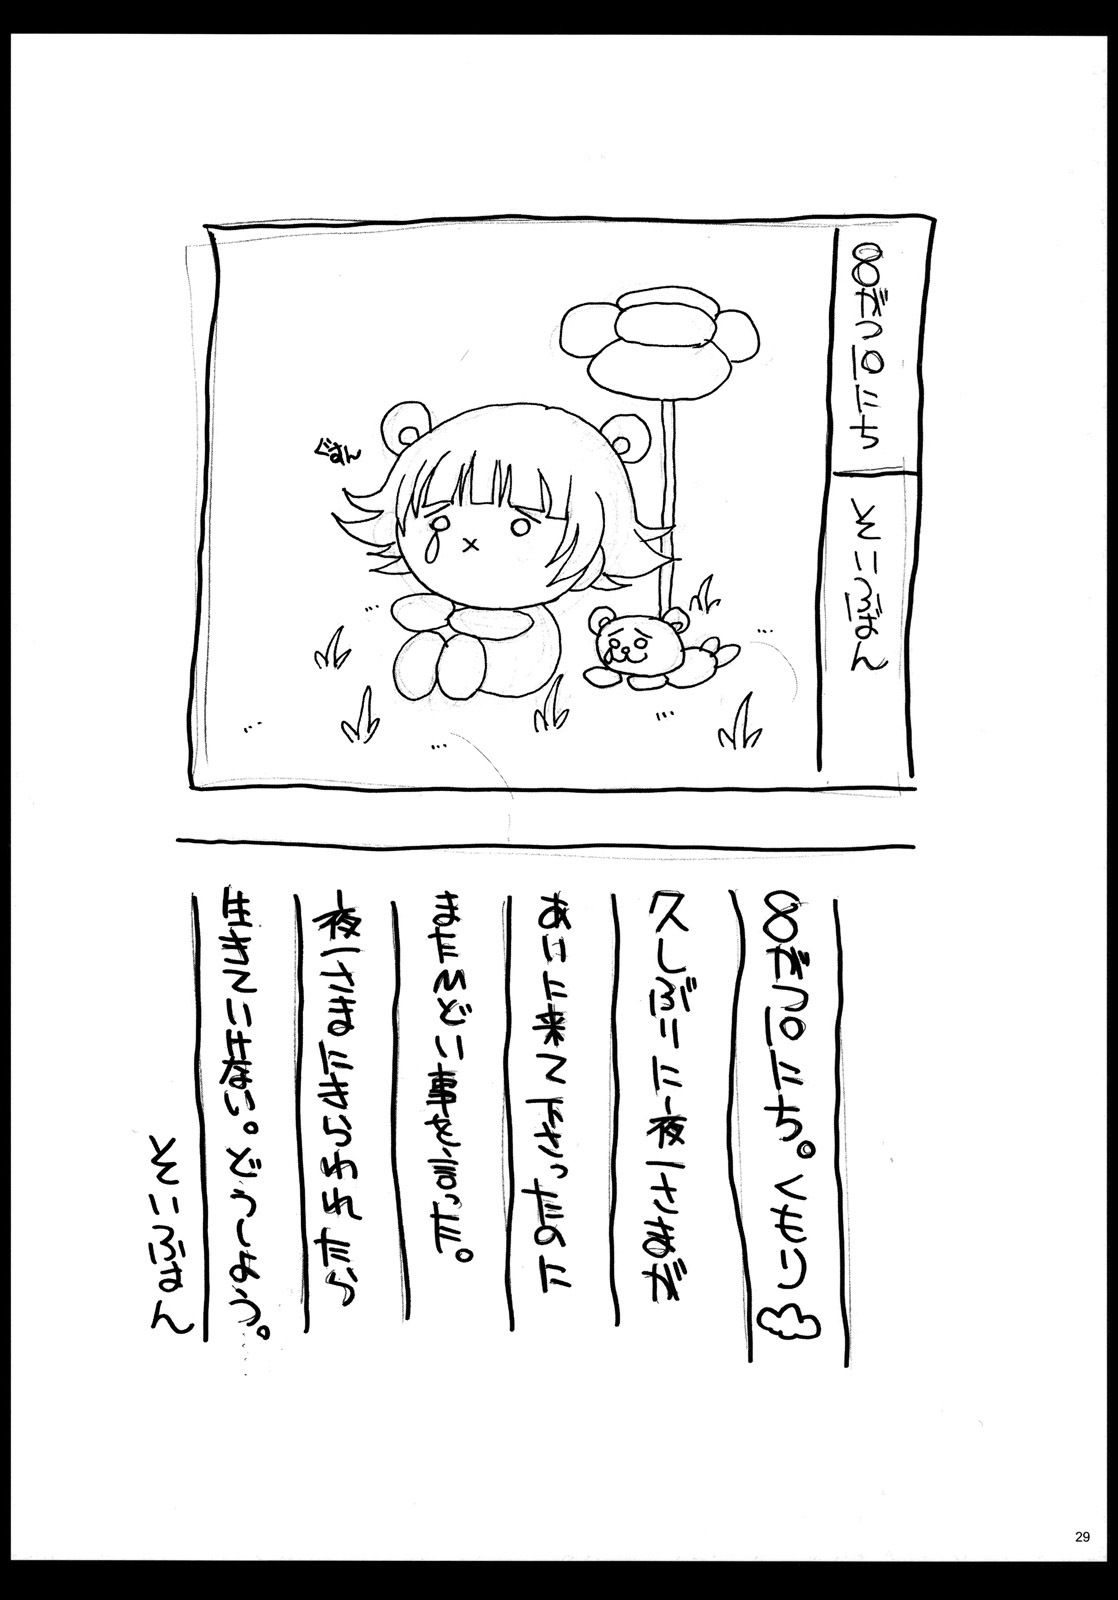 8がつ10にち
そいふぼん
ぐすん
8がつ10にち。くもり
久しぶりに一夜一さまが
あいに来て下さったのに
またひどい事を言った。
夜一さまにきらわれたら
生きていけない。どうしよう。
そいふぉん
29